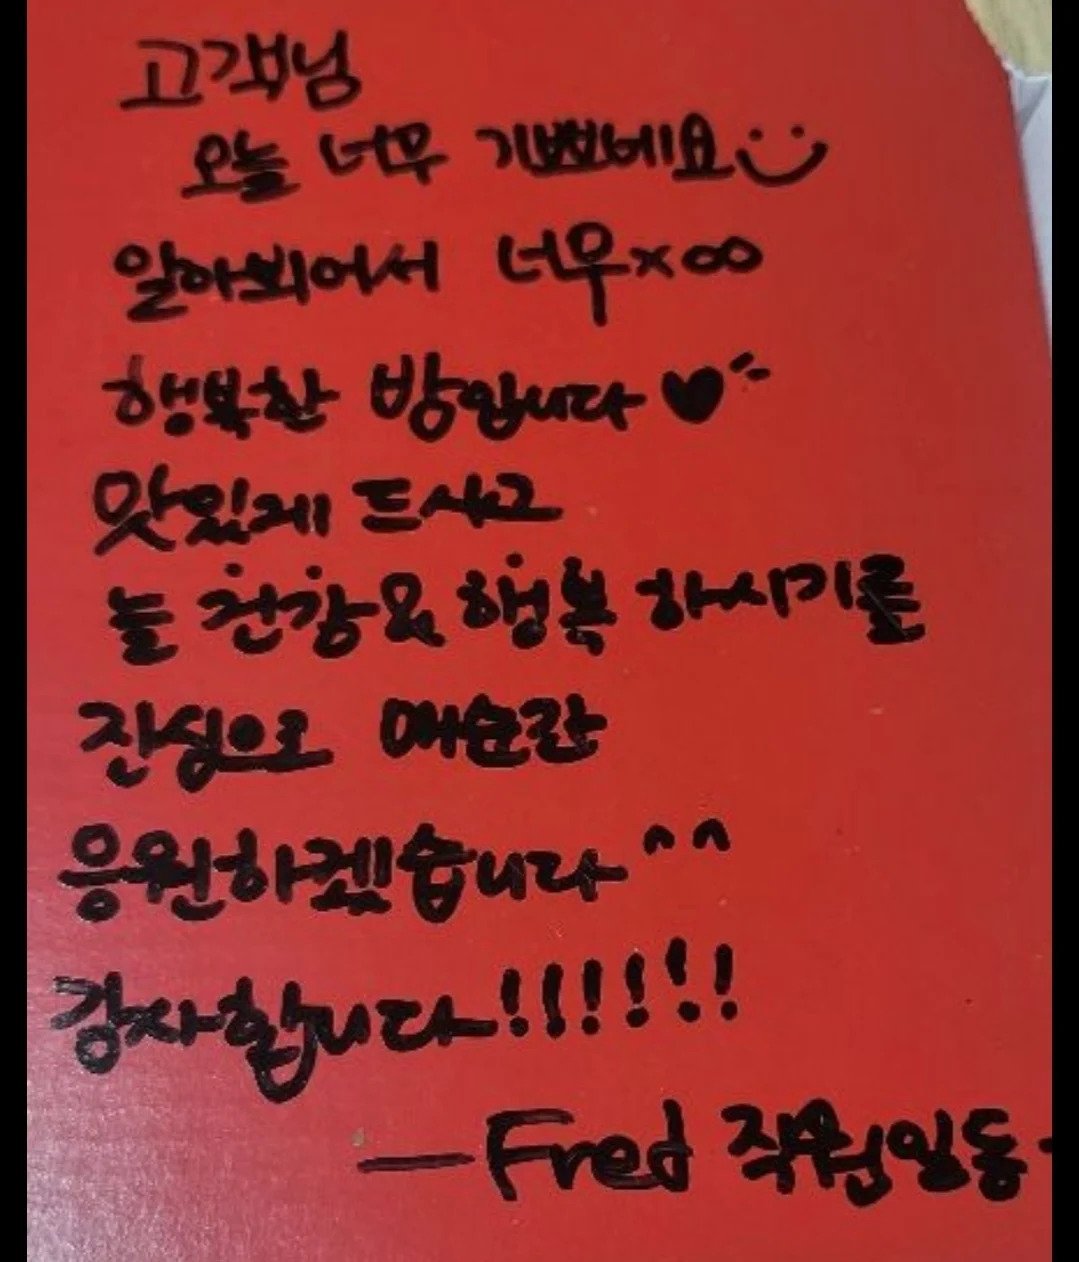 고객님
오늘 너무 기쁘네요
알아뵈어서 너무×∞
행복한 밤입니다♥
맛있게 드시고
늘 건강 & 행복 하시기를
진심으로 매순간
응원하겠습니다^^
감사합니다!!!!!!
—Fred 직원일동-